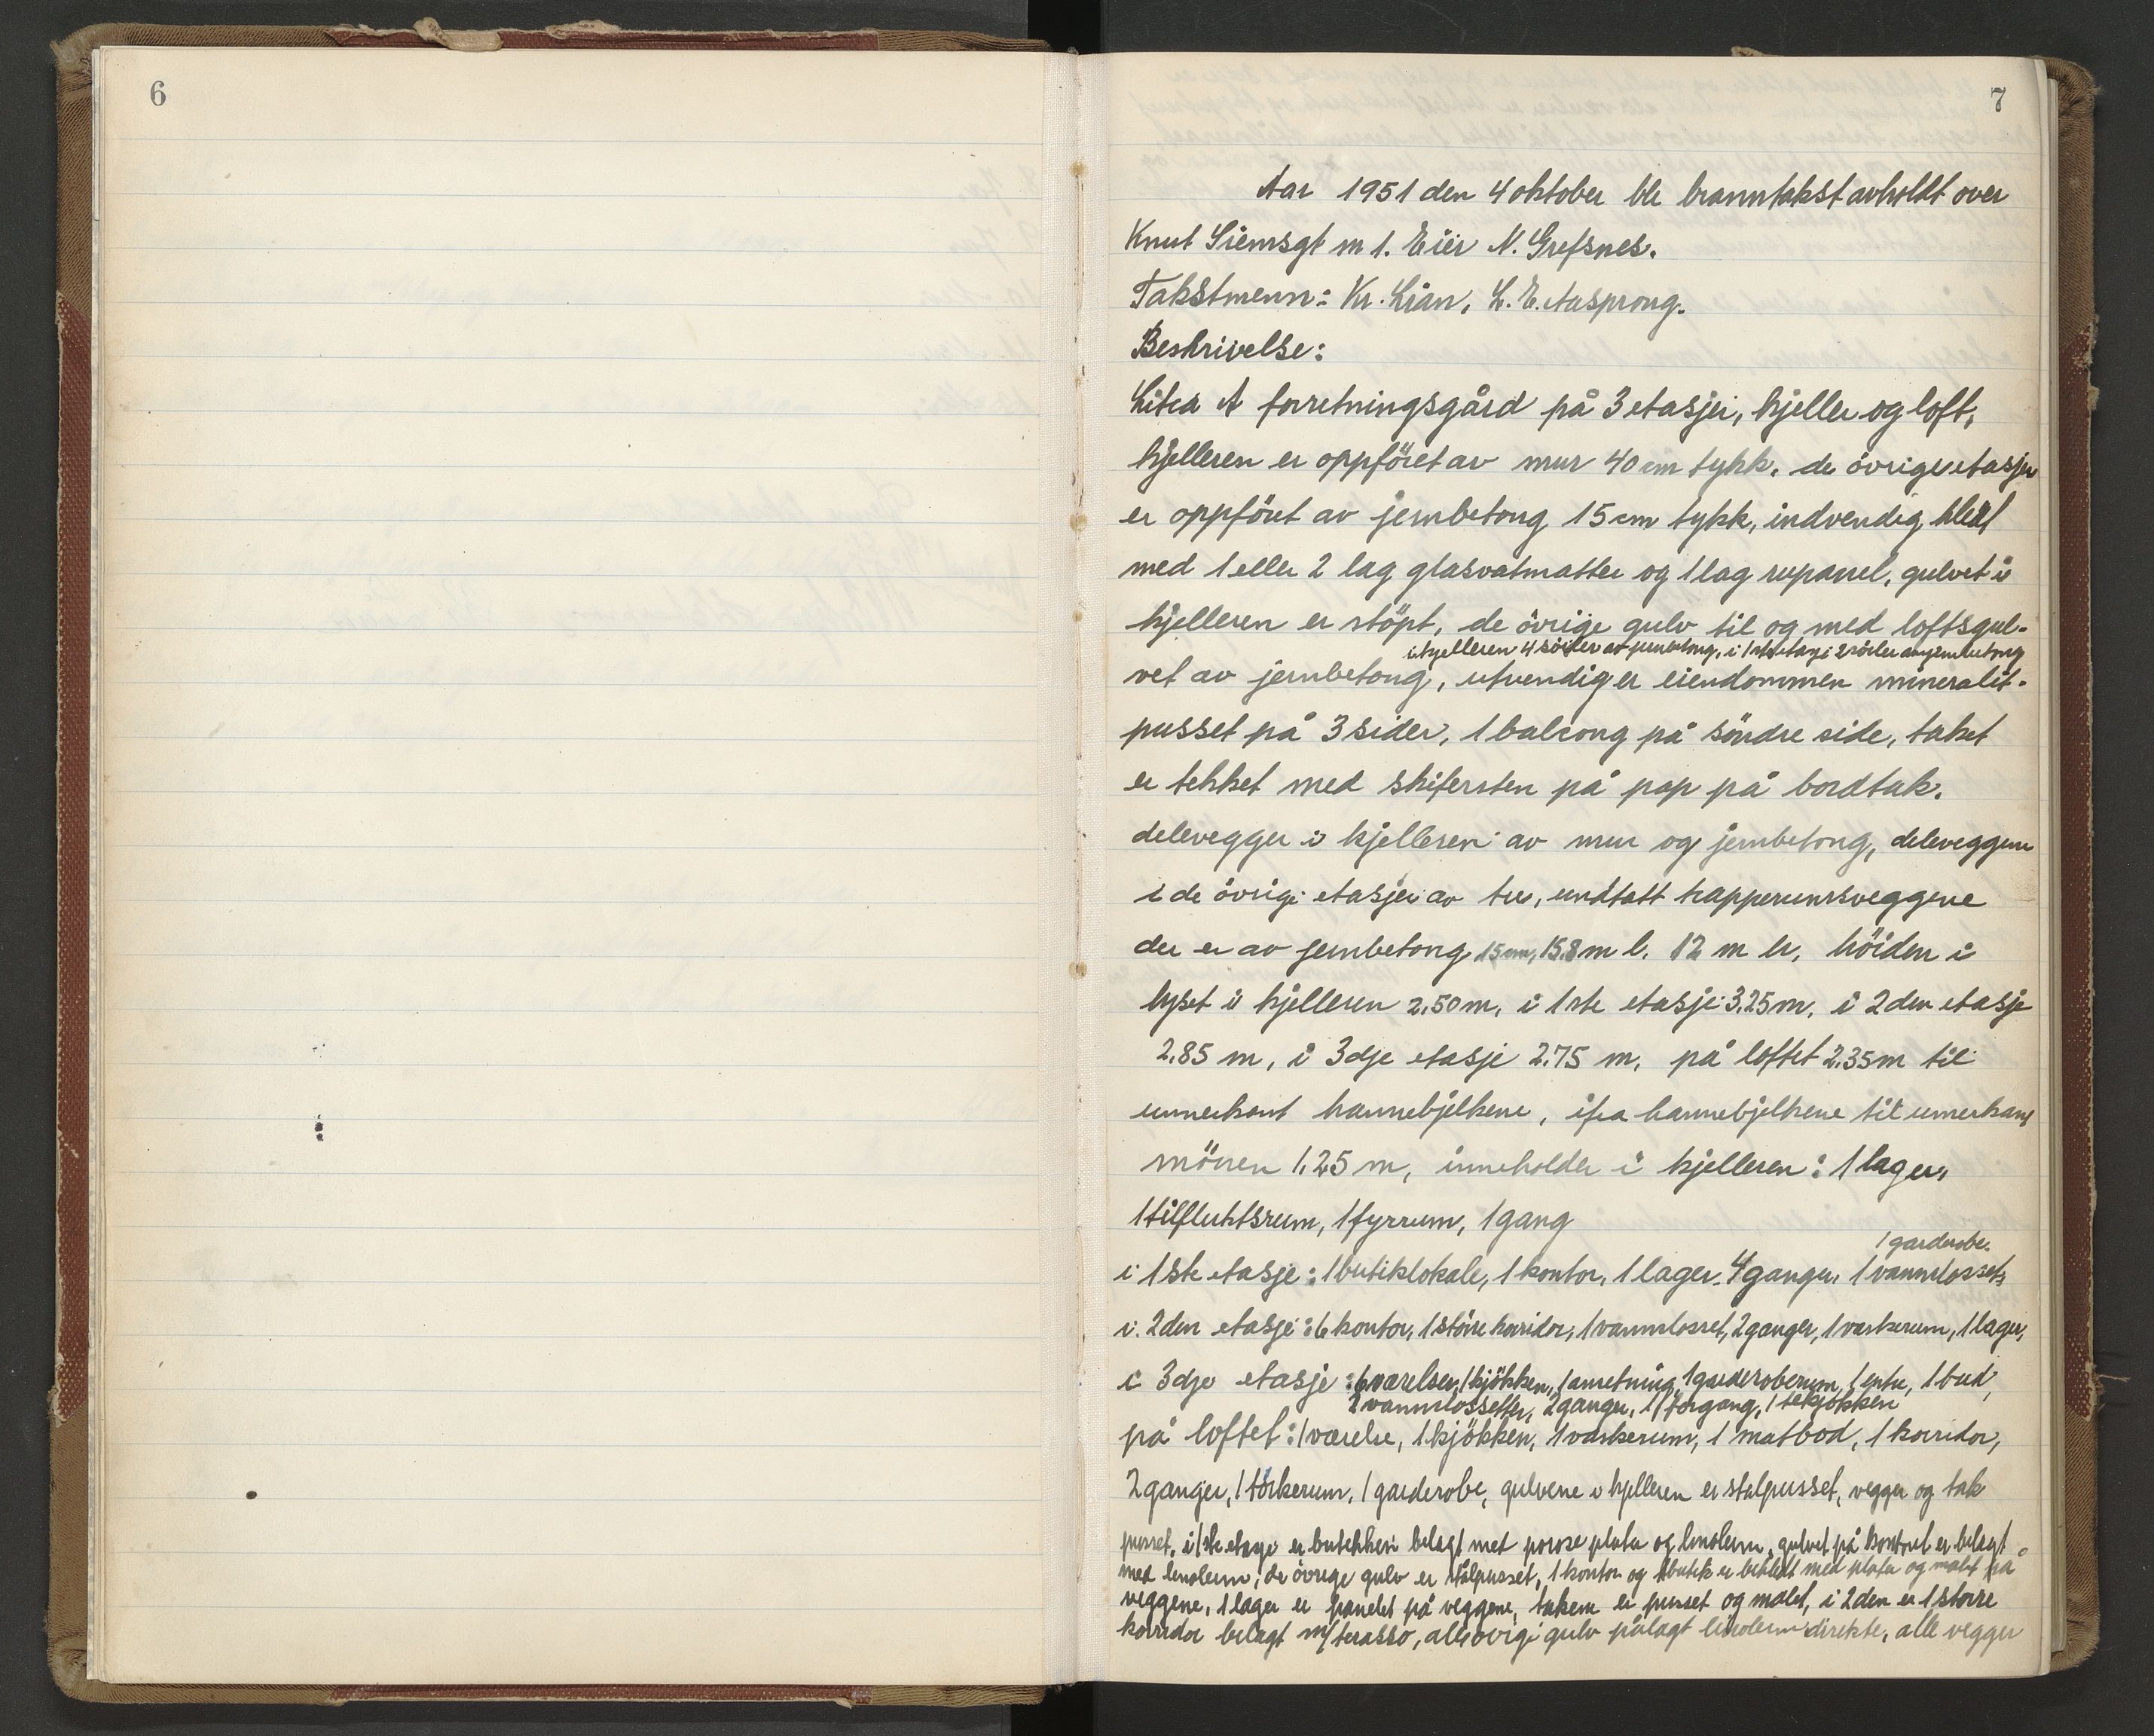 6
7
Aar 1951 den 4 oktober ble branntakst avholdt over
Knut Siemsgt m 1. Eier N. Grefsnes.
Takstmenn: Kr. Lian, L. E. Aasprong.
Beskrivelse:
Litra A forretningsgård på 3 etasjer, kjeller og loft,
kjelleren er oppföret av mur 40 cm tykk. de övrige etasjer
er oppfört av jernbetong 15 cm tykk, indvendig kledt
med 1 eller 2 lag glasvatmatter og 1 lag rupanel, gulvet i
kjelleren er stöpt, de övrige gulv til og med loftsgul-
i kjelleren 4 söiler av jernbetong, i 1ste etasje 2 söiler av jernbetong
vet av jernbetong, utvendig er eiendommen mineralit-
pusset på 3 sider, 1 balcong på söndre side, taket
er tekket med skifersten på pap på bordtak.
delevegger i kjelleren av mur og jernbetong, deleveggene
i de övrige etasjer av tre, undtatt trapperumsveggene
der er av jernbetong 15 cm, 15.8 m l. 12 m br, höiden i
lyset i kjelleren 2.50 m, i 1ste etasje 3.25 m, i 2den etasje
2.85 m, i 3dje etasje 2.75 m, på loftet 2.35 m til
unnerkant hannebjelkene, ifra hannebjelkene til unnerkant
mönen 1.25 m, inneholder i kjelleren: 1 lager,
1 tilfluktsrum, 1 fyrrum, 1 gang
1 garderobe.
i 1ste etasje: 1 butiklokale, 1 kontor, 1 lager. 4 ganger, 1 vannclosset,
i 2den etasje: 6 kontor, 1 större korridor, 1 vannclosset, 2 ganger, 1 vaskerum, 1 lager,
i 3dje etasje: 6 værelser, 1 kjökken, 1 anretning, 1 garderoberum, 1 entre, 1 bad,
2 vannclossetter, 2 ganger, 1 forgang, 1 tekjökken
på loftet: 1 værelse, 1 kjökken, 1 vaskerum, 1 matbod, 1 korridor,
2 ganger, 1 törkerum, 1 garderobe, gulvene i kjelleren er stålpusset, vegger og tak
pusset, i 1ste etasje er butikken belagt met porøse plater og linoleum, gulvet på kontoret er belagt
med linoleum, de övrige gulv er stålpusset, 1 kontor og 1 butik er bekledt med plater og malt på
veggene, 1 lager er panelet på veggene, takene er pusset og malet, i 2den er 1 større
korridor belagt m/ terasso, alle övrige gulv pålagt linoleum direkte, alle vegger